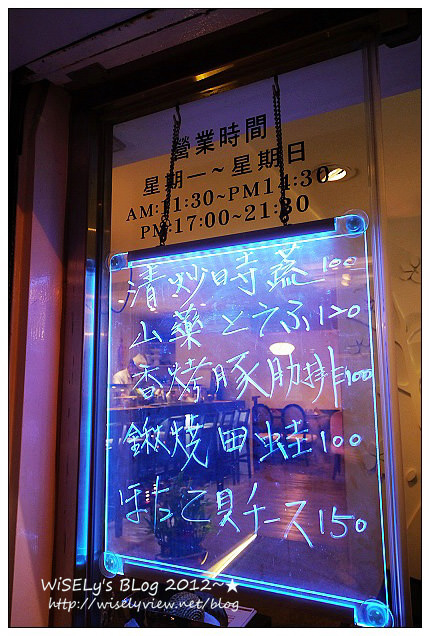 營業時間
星期一~星期日
AM:11:30~PM14:30
PM:17:00~21:30
清炒時蔬100
山藥とうふ120
香烤豚肋排100
鍬燒田蛙100
ほたて貝チース150
WiSELy's Blog 2012~★
http://wiselyview.net/blog